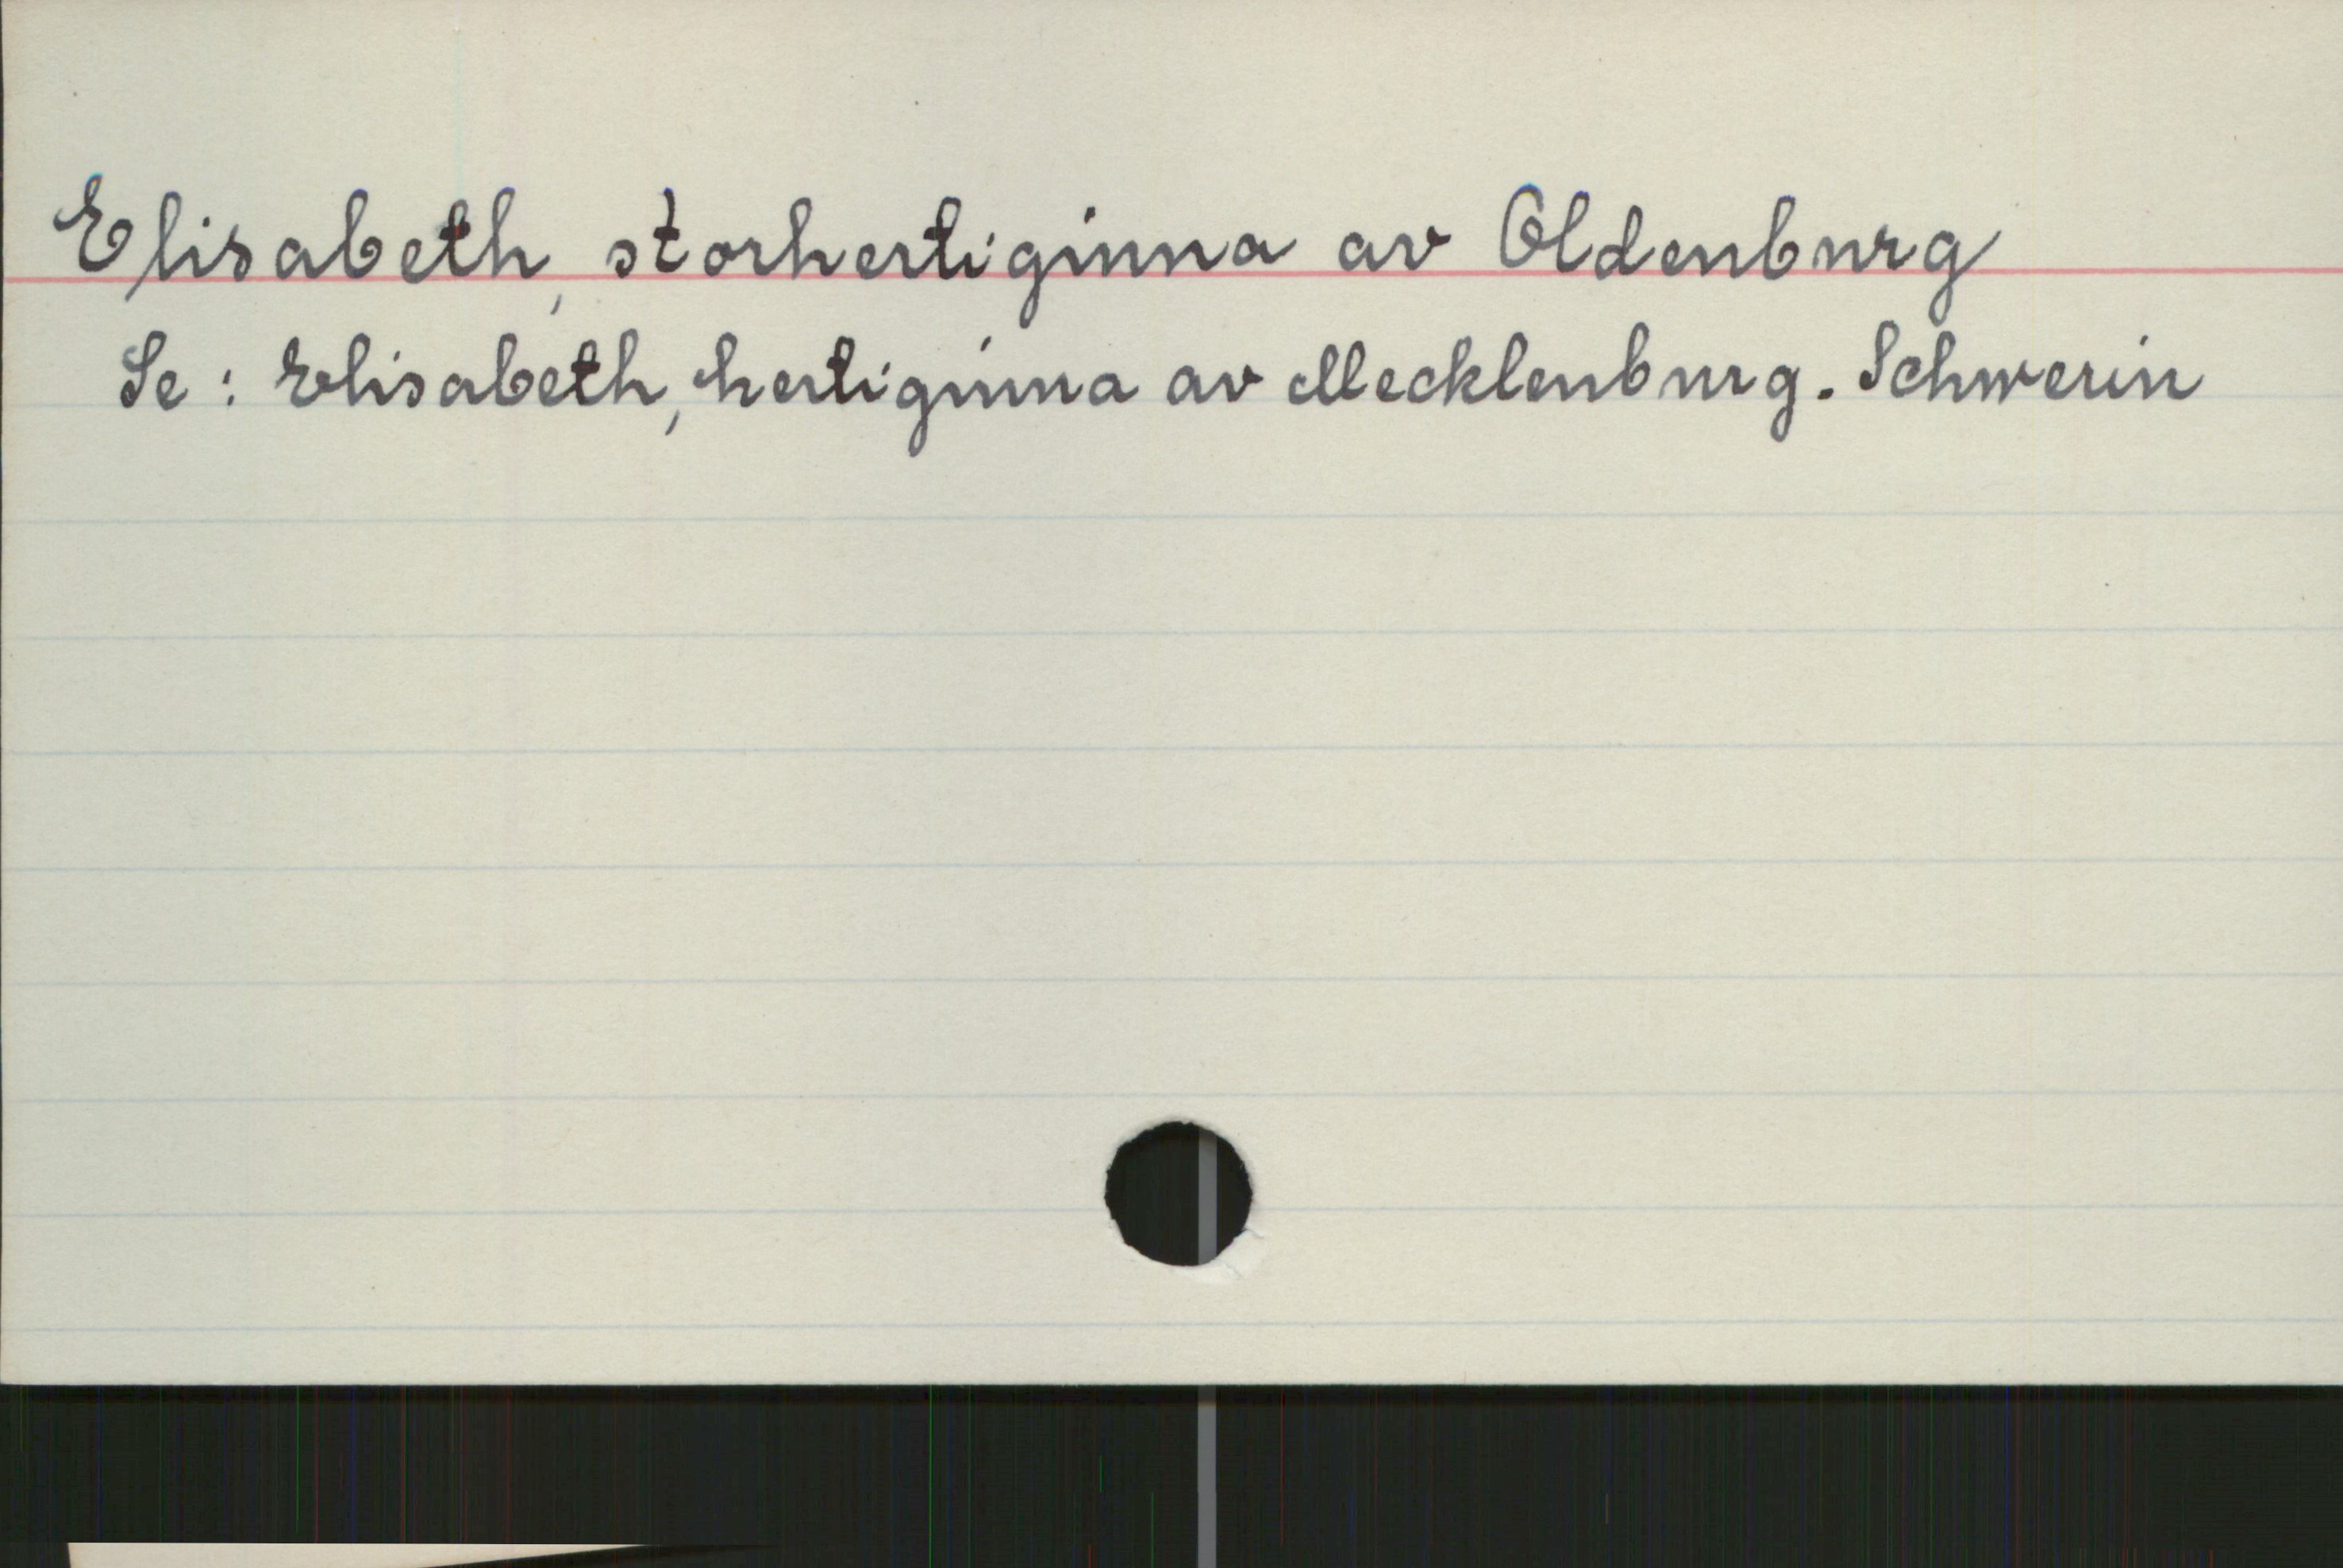 Elisabeth, storhertiginna av Oldenburg
Se: Elisabeth, hertiginna av Mecklenburg-Schwerin